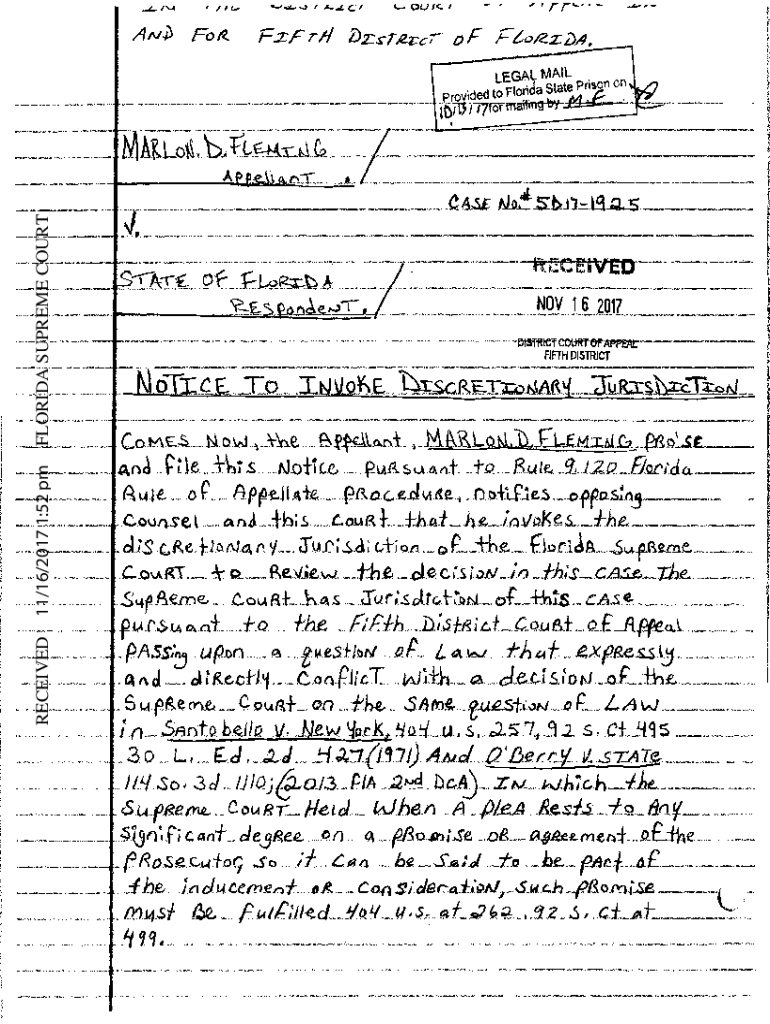 IN THE DISTRICT COURT OF APPEAL IN
AND FOR FIFTH DISTRICT OF FLORIDA.
LEGAL MAIL
Provided to Florida State Prison on
10/13/17 for mailing by M.F
MARLON. D. FLEMING
Appellant.
CASE No.# 5D17-1925
V.
STATE OF FLORIDA
RESpondenT.
RECEIVED
NOV 16 2017
DISTRICT COURT OF APPEAL
FIFTH DISTRICT
RECEIVED 11/16/2017 1:52 pm FLORIDA SUPREME COURT
NOTICE TO INVOKE DISCRETIONARY JURISDICTION
COMES NOW, the Appellant, MARLON.D.FLEMING PRO'SE
and file this Notice puRsuant to Rule 9.120 Florida
Rule of Appellate PRoceduRe, notifies opposing
Counsel and this CouRt that he invokes the
disCRetioNaRy JuRisdiction of the FloridA SupReme
CouRT to Review the decisioN in this CASE The
SupReme CouRt has JuRisdictioN of this CASE
puRsuant to the Fifth DistRict CouRt of Appeal
PASSing upon a questioN of Law that expRessly
and diRectly ConflicT with a decision of the
SupReme CouRt on the SAme question of LAW
in Santobello V. New York, 404 u.s. 257, 92 S. Ct 495
30 L. Ed. 2d 427 (1971) And O'BerRy V. STATE
114 So. 3d. 1110; (2013 FlA 2nd DCA) IN which the
SupReme CouRT Held When A pleA Rests to Any
Significant degRee on a pRomise oR agReement of the
PRosecutoR, so it Can be Said to be pARt of
the inducement oR ConsideRatioN, Such pRomise
must Be Fulfilled 404 u.s. at 262, 92 S. Ct at
499.